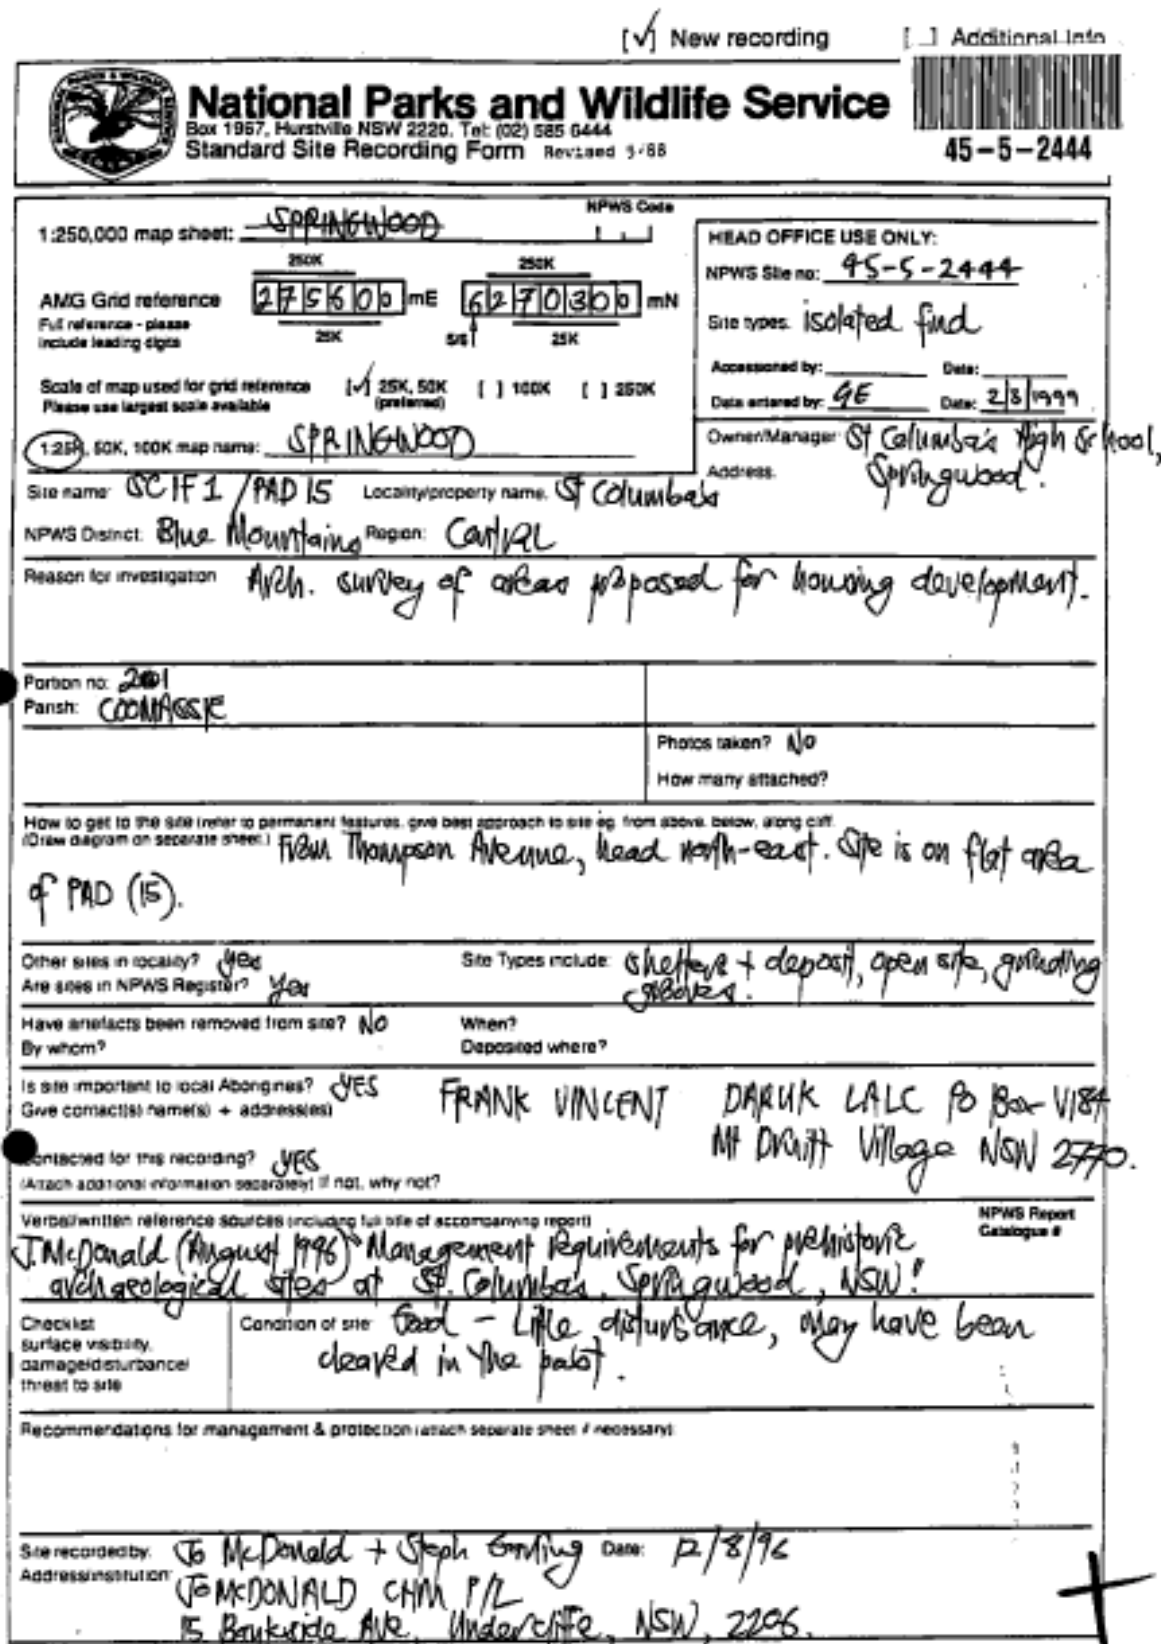 [✓] New recording [ ] Additional Info
National Parks and Wildlife Service
Box 1967, Hurstville NSW 2220. Tel: (02) 585 6444
Standard Site Recording Form Revised 5/88
45-5-2444
NPWS Code
1:250,000 map sheet: SPRINGWOOD
250K 250K
AMG Grid reference 275600 mE 6270300 mN
Full reference - please
include leading digits
25K 25K
Scale of map used for grid reference [✓] 25K, 50K [ ] 100K [ ] 250K
Please use largest scale available (preferred)
1:25K, 50K, 100K map name: SPRINGWOOD
HEAD OFFICE USE ONLY:
NPWS Site no: 45-5-2444
Site types: isolated find
Accessioned by: Date:
Data entered by: GE Date: 2/3/1999
Owner/Manager: St Columba's High School,
Address: Springwood.
Site name: SCIF1 / PAD 15 Locality/property name: St Columba's
NPWS District: Blue Mountains Region: Central
Reason for investigation Arch. survey of areas proposed for housing development.
Portion no:
Parish: COOMASSIE
Photos taken? No
How many attached?
How to get to the site (refer to permanent features, give best approach to site eg. from above, below, along cliff.
(Draw diagram on separate sheet.) From Thompson Avenue, head north-east. Site is on flat area
of PAD (15).
Other sites in locality? yes Site Types include: shelters + deposit, open site, grinding
Are sites in NPWS Register? yes grooves.
Have artefacts been removed from site? NO When?
By whom? Deposited where?
Is site important to local Aborigines? YES
Give contact(s) name(s) + address(es) FRANK VINCENT DARUK LALC PO Box V184
Mt Druitt Village NSW 2770.
Contacted for this recording? YES
(Attach additional information separately) If not, why not?
Verbal/written reference sources (including full title of accompanying report) NPWS Report
Catalogue #
J. McDonald (August 1996) "Management requirements for prehistoric
archaeological sites at St. Columba's, Springwood, NSW."
Checklist
surface visibility,
damage/disturbance/
threat to site
Condition of site: Good - Little disturbance, may have been
cleared in the past.
Recommendations for management & protection (attach separate sheet if necessary):
Site recorded by: Jo McDonald + Steph Date: 12/8/96
Address/institution: Jo McDONALD CHM P/L
15 Bankside Ave, Undercliffe, NSW, 2206.